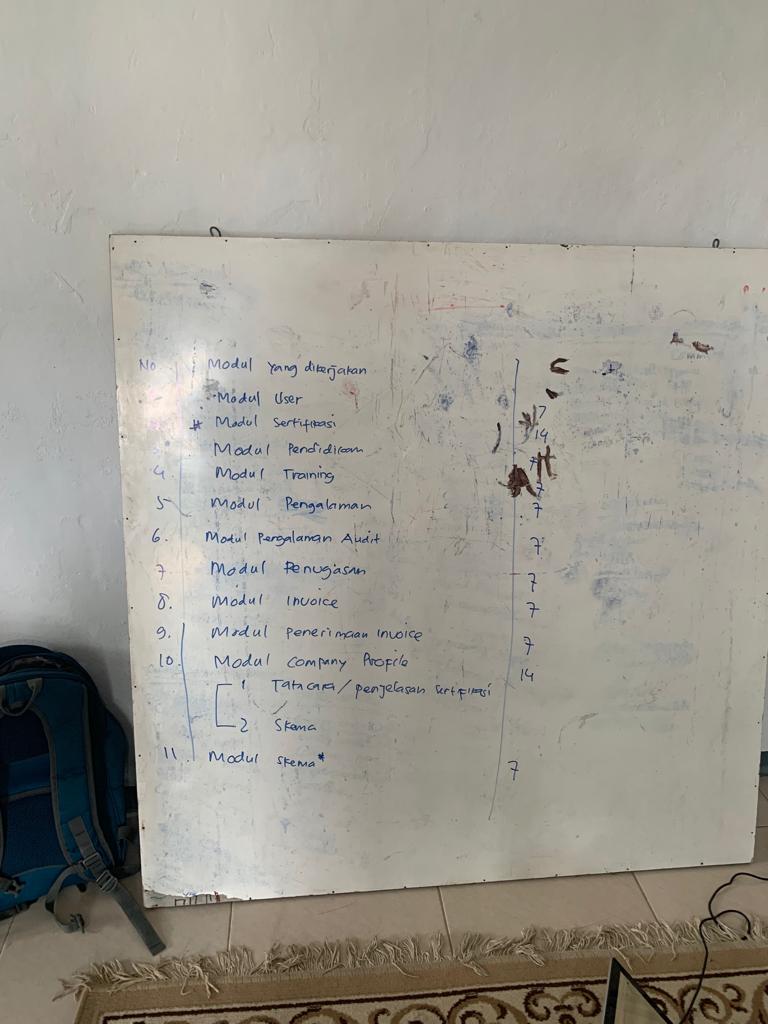 No Modul yang dikerjakan
Modul User 7
* Modul Sertifikasi 14
3 Modul Pendidikan 7
4 Modul Training 7
5 Modul Pengalaman 7
6. Modul Pengalaman Audit 7
7 Modul Penugasan 7
8. Modul Invoice 7
9. Modul penerimaan Invoice 7
10. Modul Company Profile 14
1 Tatacara/penjelasan sertifikasi
2 Skema
11 Modul skema* 7